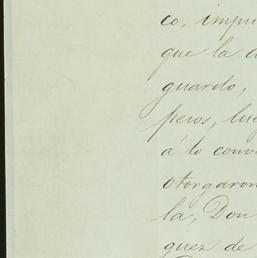 co, impu
que la d
guardo,
peros, lu
á lo conv
otorgaron
la, Don
quez de